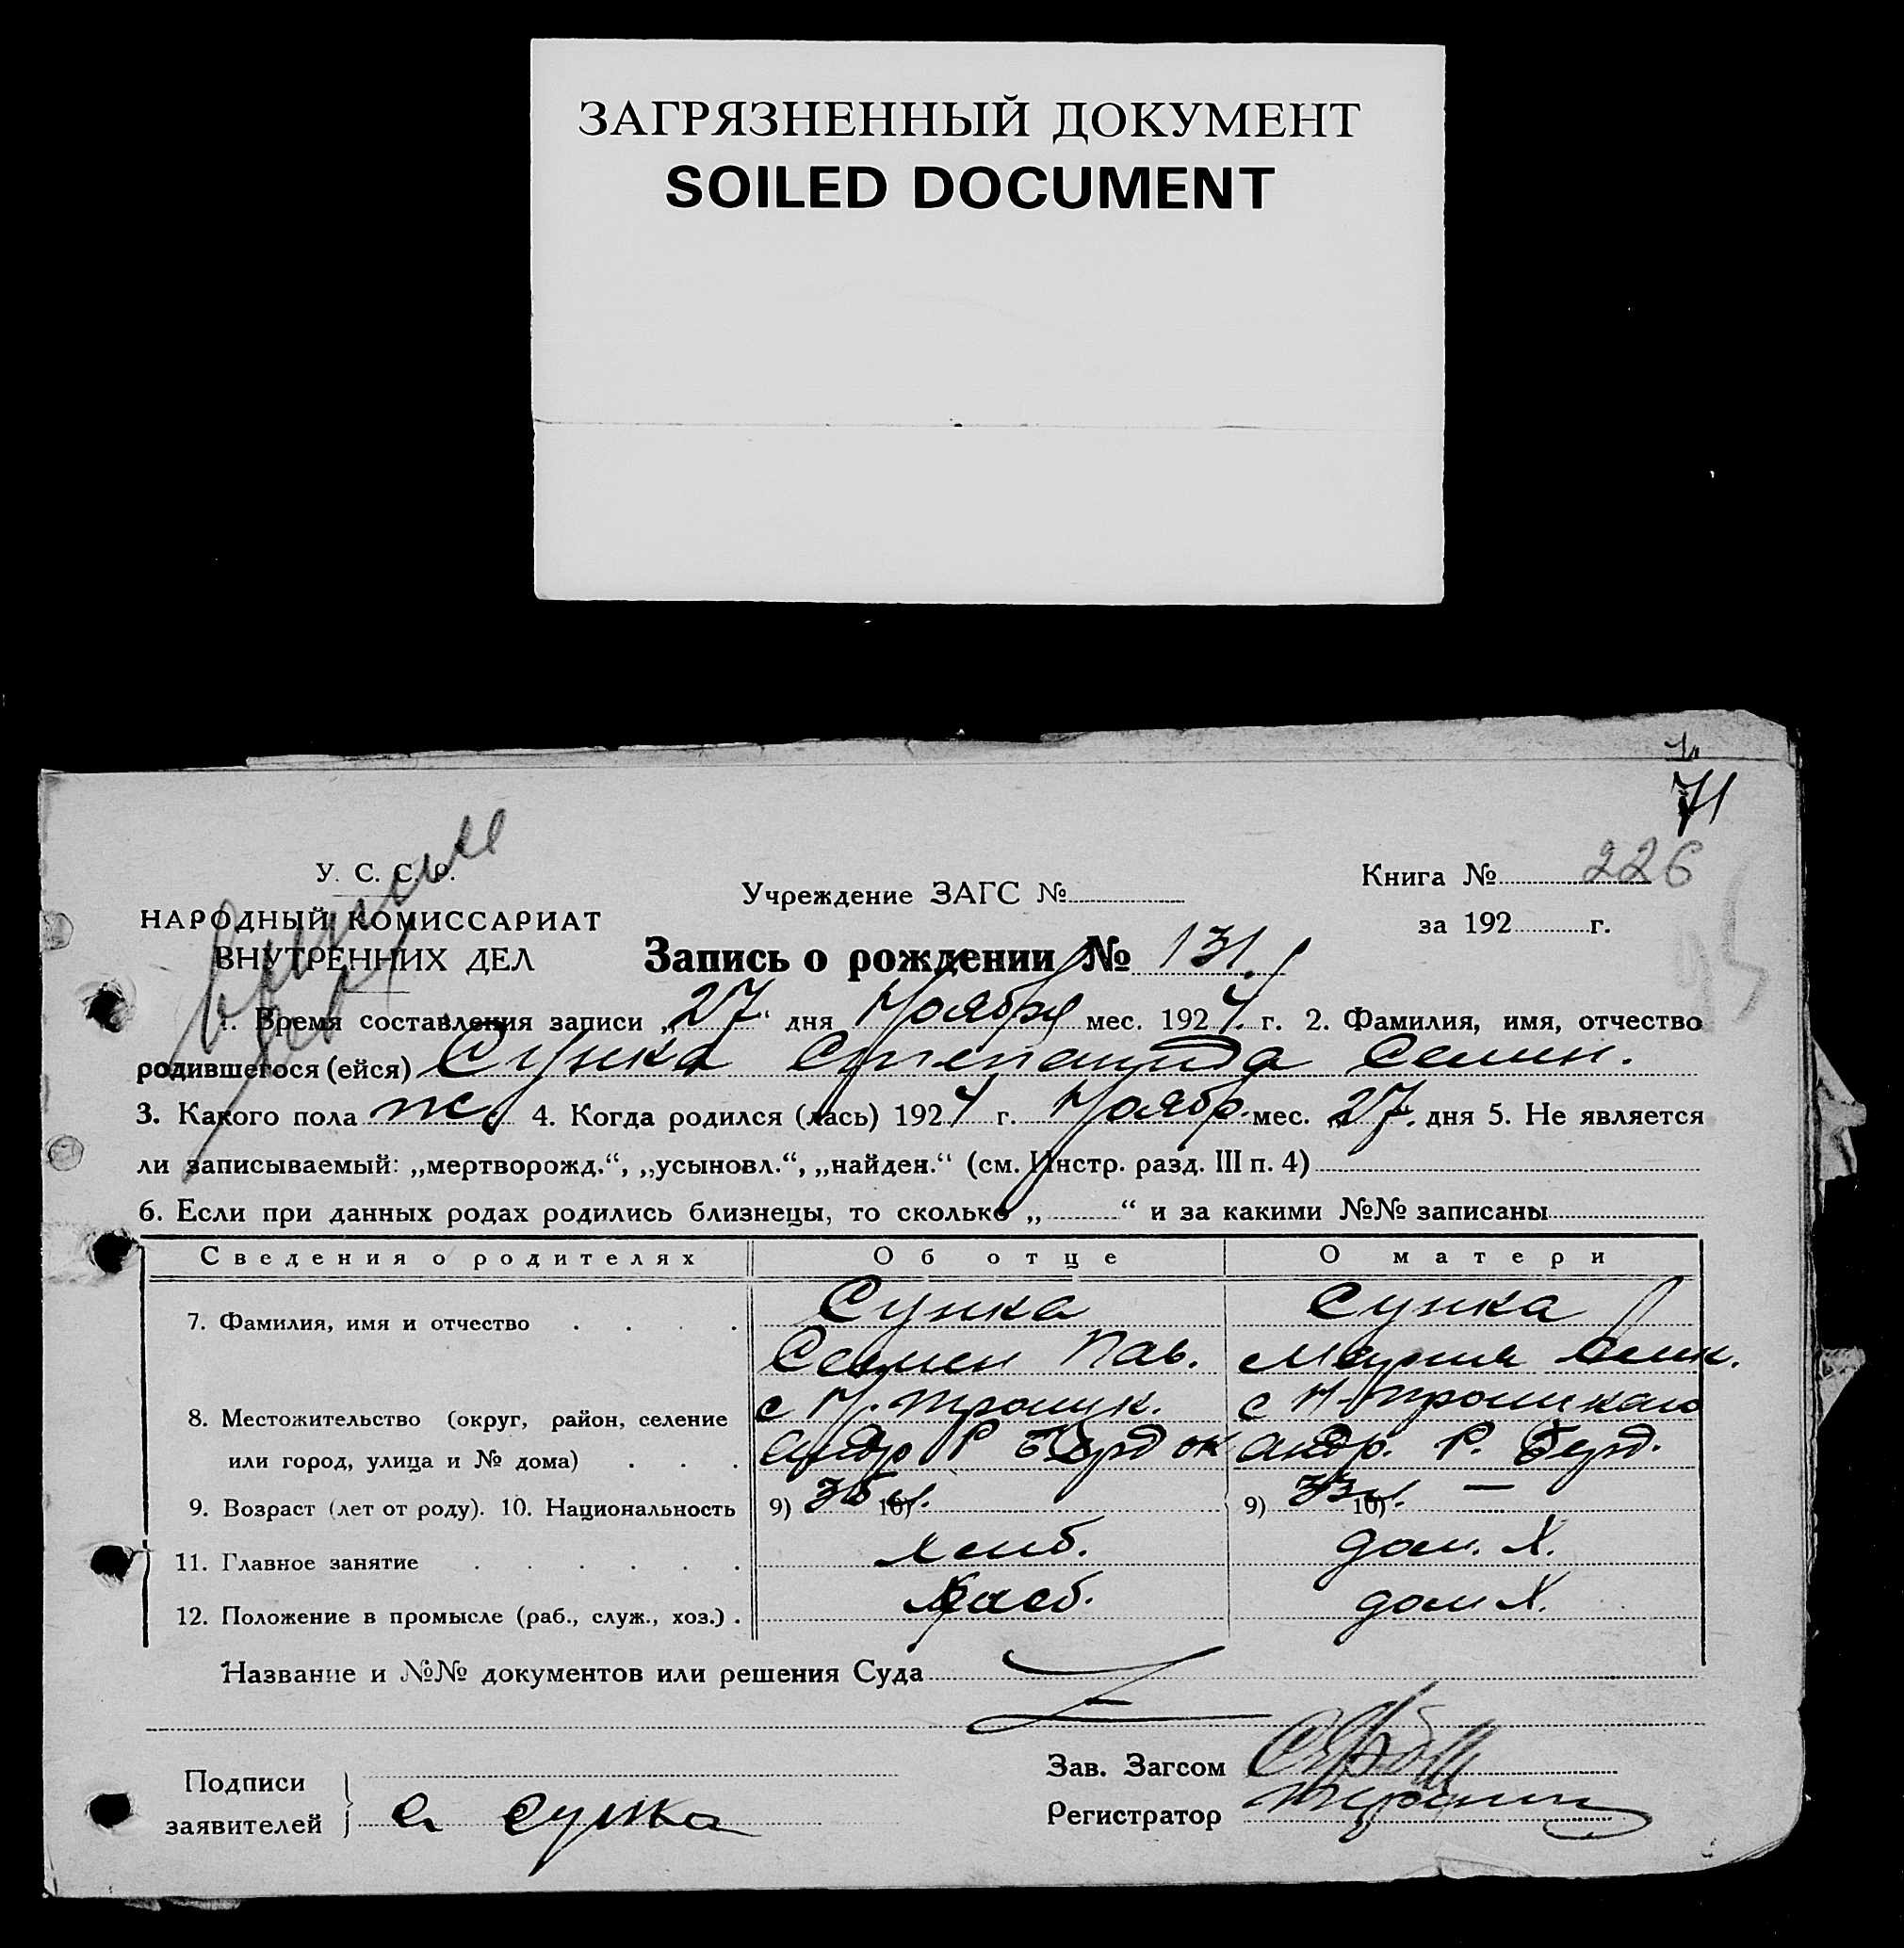 ЗАГРЯЗНЕННЫЙ ДОКУМЕНТ
SOILED DOCUMENT
71
У. С. С. Р.
НАРОДНЫЙ КОМИССАРИАТ
ВНУТРЕННИХ ДЕЛ
Учреждение ЗАГС №
Книга № 226
за 192 г.
Запись о рождении № 131.
1. Время составления записи „27“ дня Ноября мес. 1924. г. 2. Фамилия, имя, отчество
родившегося (ейся) Сунка Степанида Семен.
3. Какого пола ж. 4. Когда родился (лась) 1924 г. Ноябр. мес. „27. дня 5. Не является
ли записываемый: „мертворожд.“, „усыновл.“, „найден.“ (см. Инстр. разд. III п. 4)
6. Если при данных родах родились близнецы, то сколько „ “ и за какими №№ записаны
Сведения о родителях Об отце О матери
7. Фамилия, имя и отчество Сунка Сунка
Семен Пав. Мария
8. Местожительство (округ, район, селение с Н. Троицк. с Н-Троицкаго
или город, улица и № дома) Андр Р Берд ок Андр. Р. Берд.
9. Возраст (лет от роду). 10. Национальность 9) 35 л. 10) 9) 33 л. 10) —
11. Главное занятие хлиб. дом. Х.
12. Положение в промысле (раб., служ., хоз.) дом Х.
Название и №№ документов или решения Суда
Зав. Загсом
Подписи
заявителей С. Сунка
Регистратор